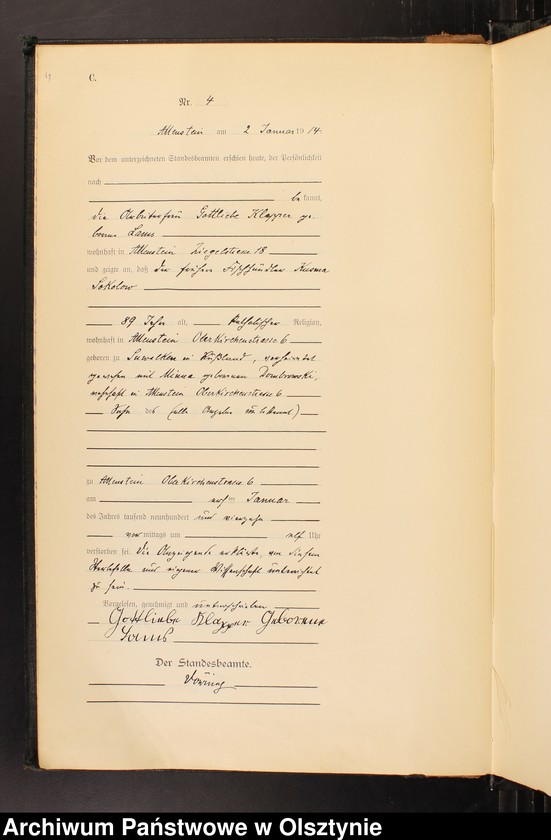 C.
Nr. 4
Allenstein am 2 Januar 1914.
Vor dem unterzeichneten Standesbeamten erschien heute, der Persönlichkeit
nach
bekannt,
die Arbeiterfrau Gottliebe Klapper ge-
borene Lams
wohnhaft in Allenstein Ziegelstrasse 18
und zeigte an, daß der frühere Fischhändler Kusma
Sokolow
89 Jahre alt, Religion,
wohnhaft in Allenstein Oberkirchenstrasse 6
geboren zu Suwalken in Rußland, verheiratet
gewesen mit Minna geborenen Dombrowski,
wohnhaft in Allenstein Oberkirchenstrasse 6
Sohn des (alle Angaben unbekannt)
zu Allenstein Oberkirchenstrasse 6
am ersten Januar
des Jahres tausend neunhundert und vierzehn
vormittags um elf Uhr
verstorben sei. Die Anzeigende erklärte, von diesem
Sterbefalle aus eigener Wissenschaft unterrichtet
zu sein.
Vorgelesen, genehmigt und unterschrieben
Gottliebe Klapper Geborene
Lams
Der Standesbeamte.
Archiwum Państwowe w Olsztynie